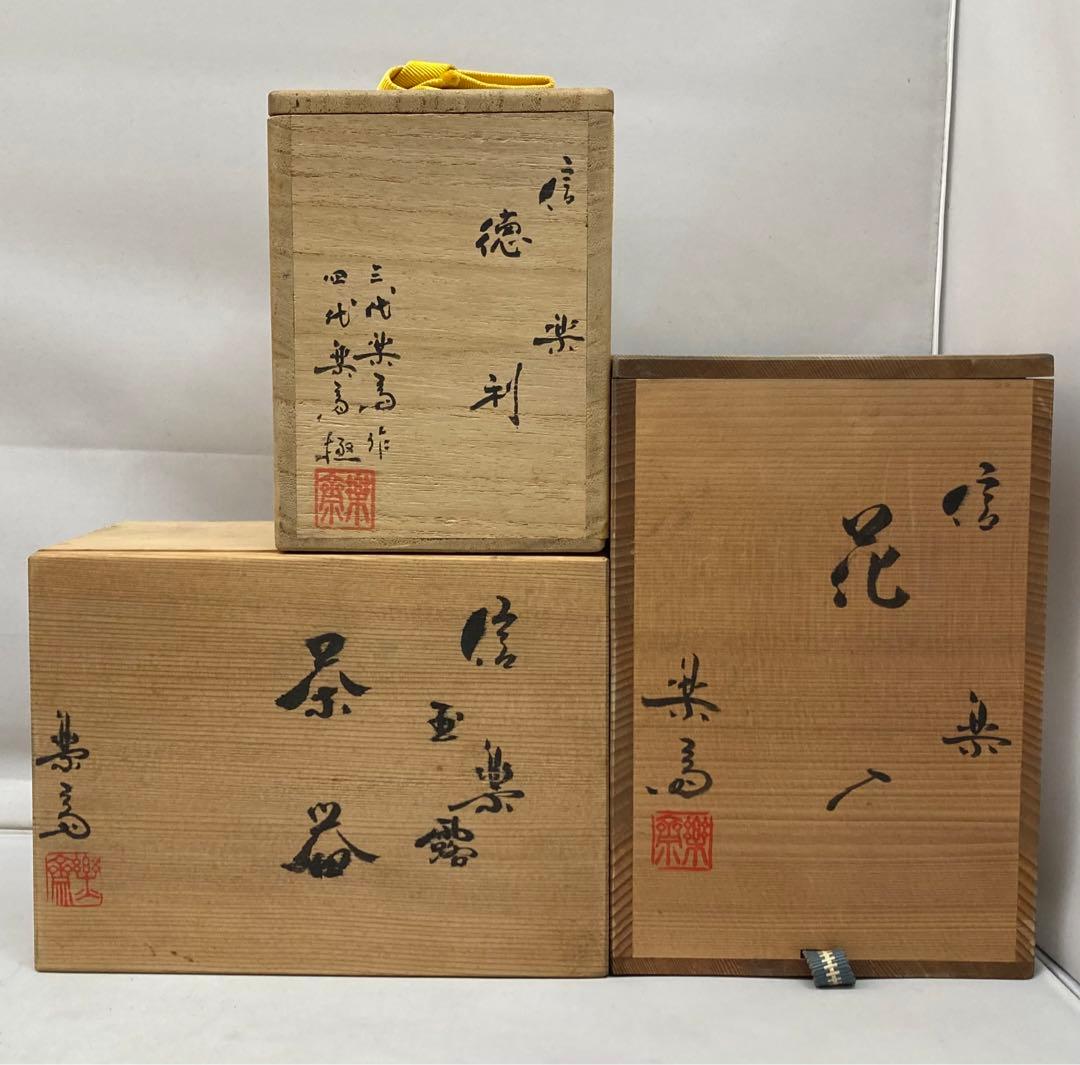 信楽
徳利
三代楽斎作
四代楽斎極
楽斎
信楽
玉露
茶器
楽斎
楽斎
信楽
花入
楽斎
楽斎